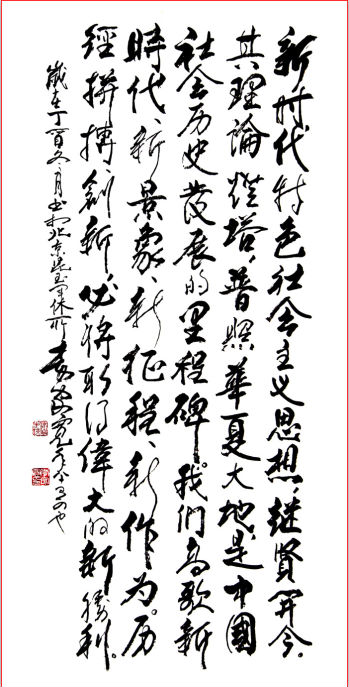 新时代特色社会主义思想，继贤开今。
其理論燈塔，普照華夏大地，是中國
社会历史發展的里程碑。我们高歌新
時代、新景象、新征程、新作为。历
經拼搏創新，必將取得偉大的新勝利。
歲在丁酉冬月书於北京 休所